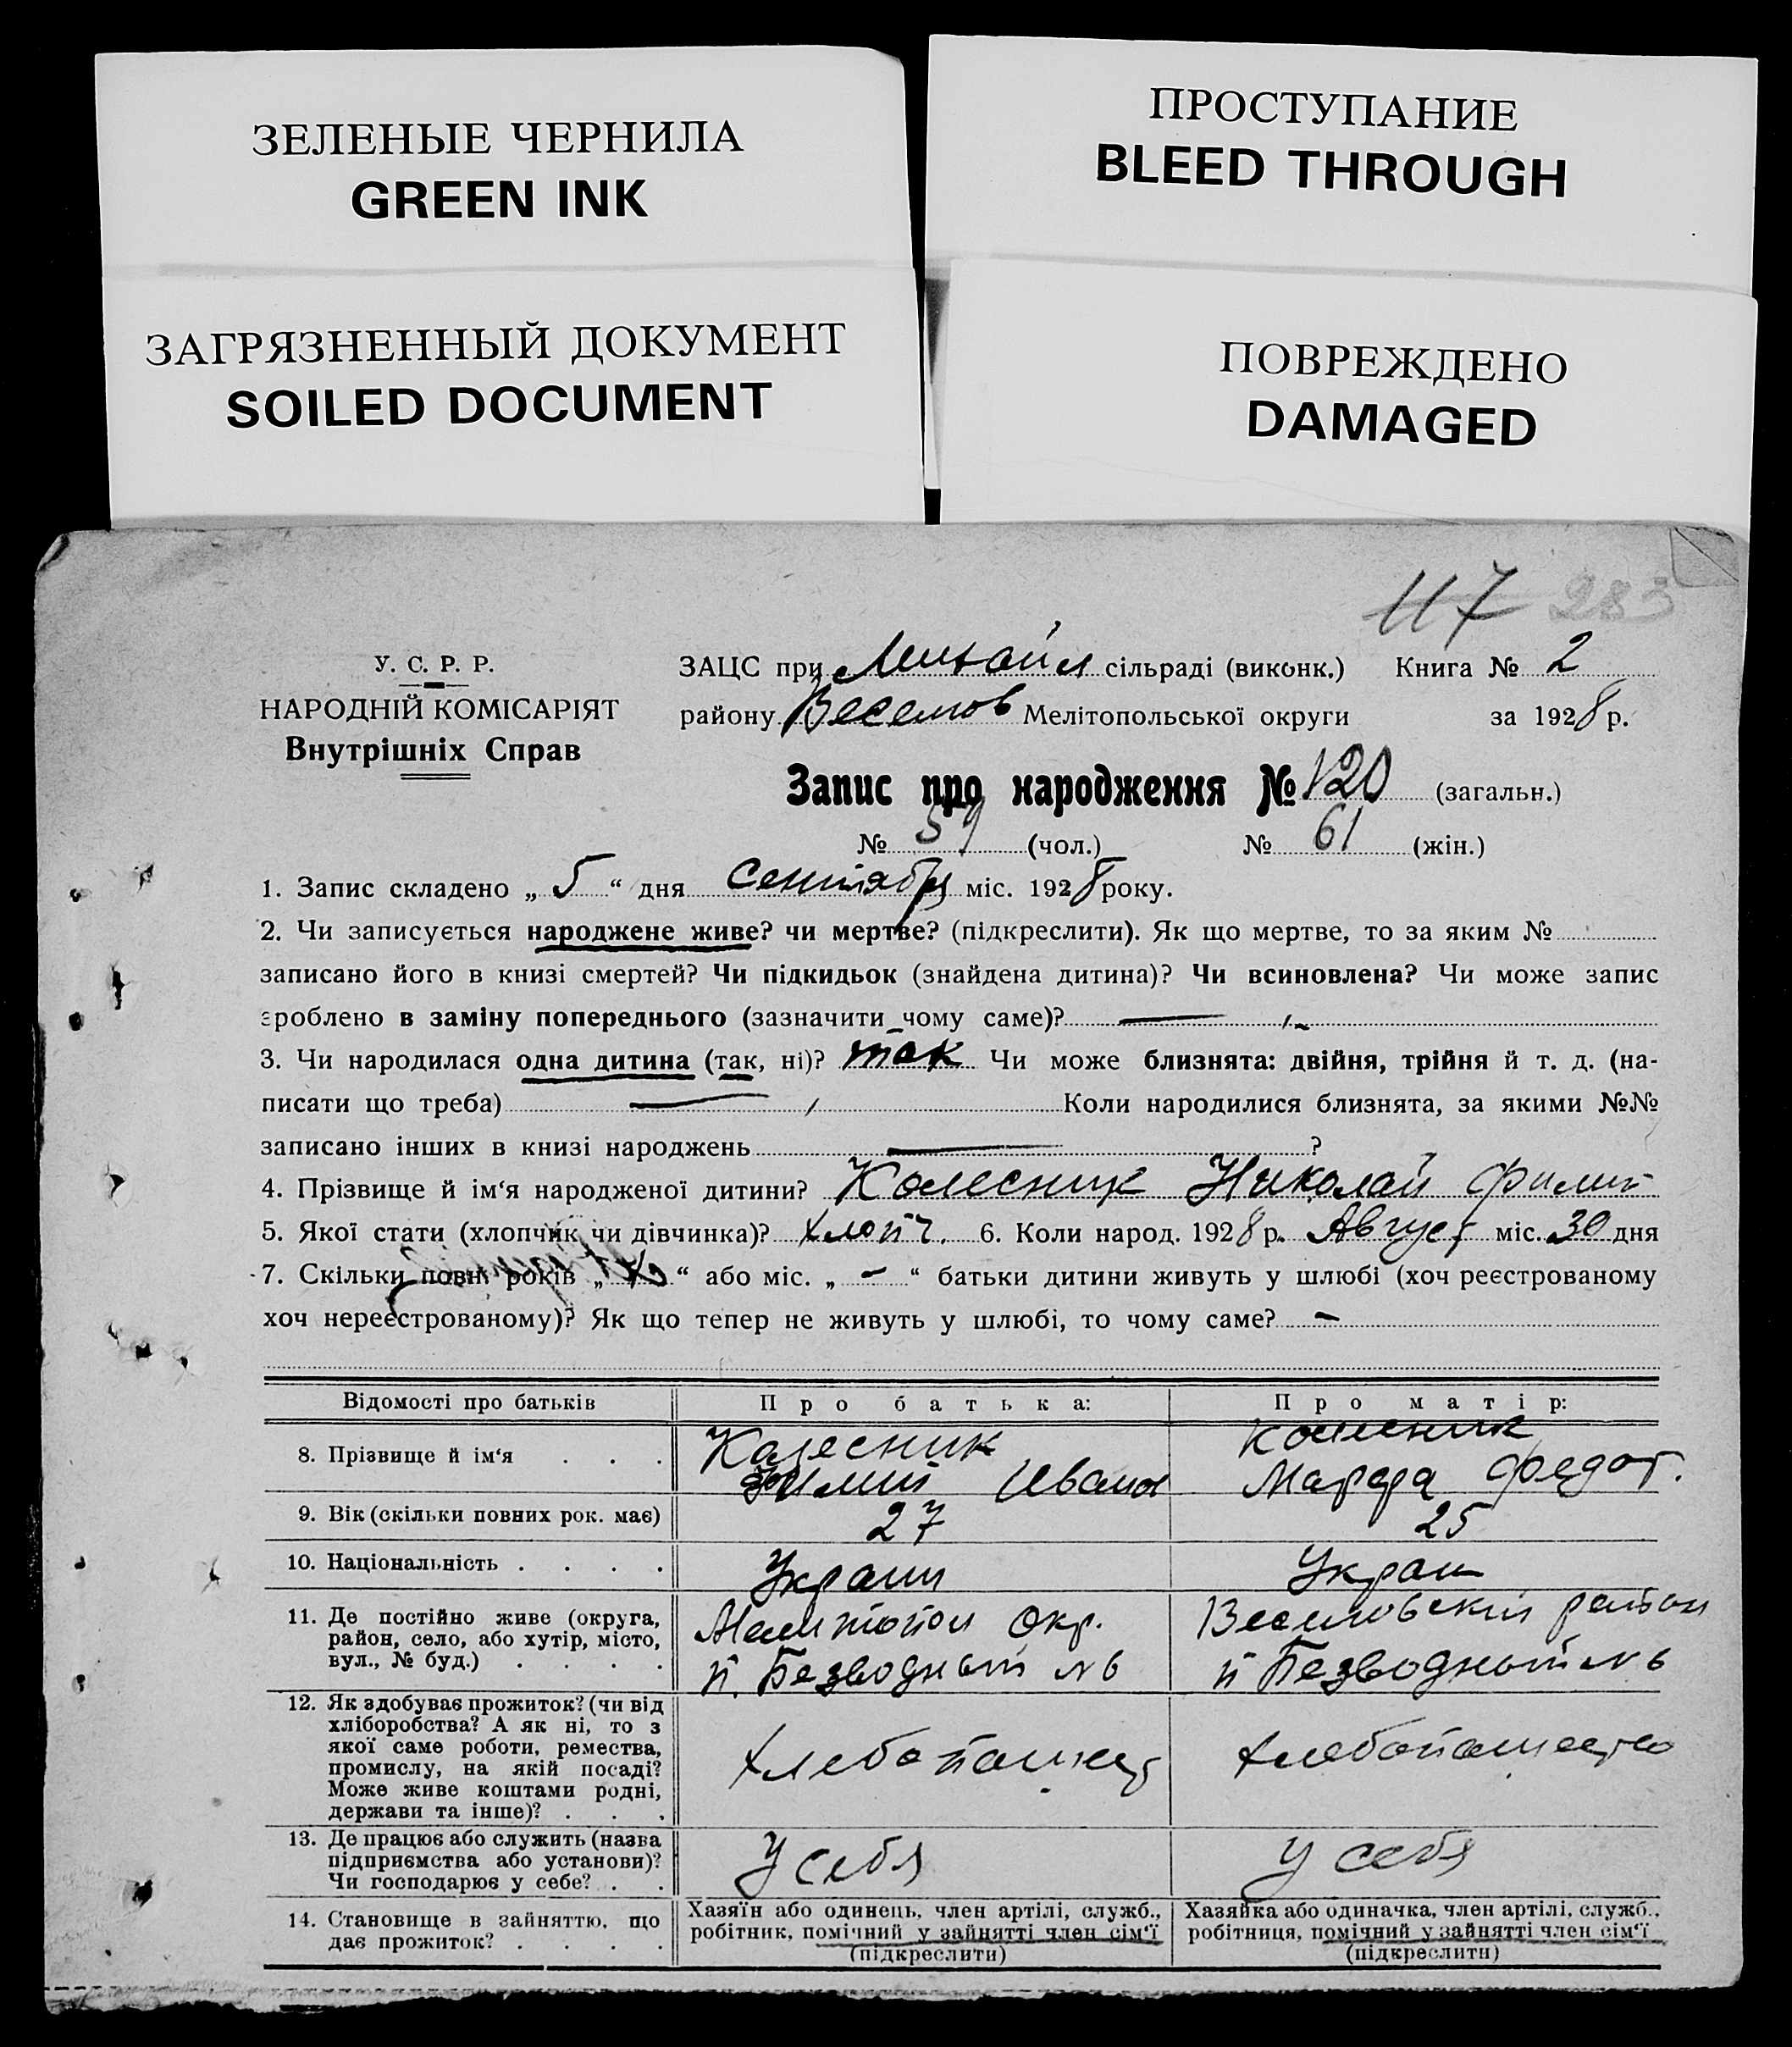 ЗЕЛЕНЫЕ ЧЕРНИЛА
GREEN INK
ПРОСТУПАНИЕ
BLEED THROUGH
ЗАГРЯЗНЕННЫЙ ДОКУМЕНТ
SOILED DOCUMENT
ПОВРЕЖДЕНО
DAMAGED
117 283
У. С. Р. Р.
НАРОДНІЙ КОМІСАРІЯТ
Внутрішніх Справ
ЗАЦС при Михайл сільраді (виконк.) Книга № 2
району Веселов Мелітопольської округи за 1928 р.
Запис про народження № 120 (загальн.)
№ 59 (чол.) № 61 (жін.)
1. Запис складено „ 5 “ дня Сентября міс. 1928 року.
2. Чи записується народжене живе? чи мертве? (підкреслити). Як що мертве, то за яким №
записано його в книзі смертей? Чи підкидьок (знайдена дитина)? Чи всиновлена? Чи може запис
зроблено в заміну попереднього (зазначити чому саме)? —
3. Чи народилася одна дитина (так, ні)? так Чи може близнята: двійня, трійня й т. д. (на-
писати що треба) — Коли народилися близнята, за якими №№
записано інших в книзі народжень — ?
4. Прізвище й ім‘я народженої дитини? Колесник Николай Филип
5. Якої стати (хлопчик чи дівчинка)? хлопч. 6. Коли народ. 1928 р. Август міс. 30 дня
7. Скільки повн. років „ “ або міс. „ – “ батьки дитини живуть у шлюбі (хоч реєстрованому
хоч нереєстрованому)? Як що тепер не живуть у шлюбі, то чому саме? –
Відомості про батьків
Про батька:
Про матір:
8. Прізвище й ім‘я . . .
Колесник
Филип Иванов
Колесник
Федот.
9. Вік (скільки повних рок. має)
27
25
10. Національність . . . .
Украин
Украи
11. Де постійно живе (округа,
район, село, або хутір, місто,
вул., № буд.) . . . .
Мелитопол Окр.
п. Безводный № 6
Веселовский район
п Безводный № 6
12. Як здобуває прожиток? (чи від
хліборобства? А як ні, то з
якої саме роботи, ремества,
промислу, на якій посаді?
Може живе коштами родні,
держави та інше)? . . .
хлебопашец
хлебопашество
13. Де працює або служить (назва
підприємства або установи)?
Чи господарює у себе? . .
У себя
У себя
14. Становище в зайняттю, що
дає прожиток? . . . .
Хазяїн або одинець, член артілі, служб.,
робітник, помічний у зайнятті член сім‘ї
(підкреслити)
Хазяйка або одиначка, член артілі, служб.,
робітниця, помічний у зайнятті член сім‘ї
(підкреслити)